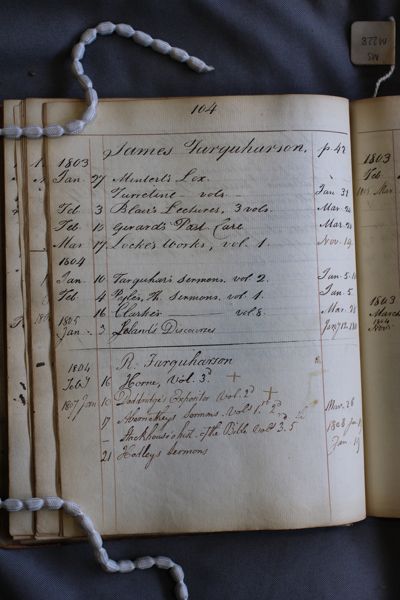 MS M228
104
James Farquharson. p. 42
1803
Jan. 27 Mintert's Lex.
Turretine — vols — Jan 31
Feb. 3 Blair's Lectures, 3 vols. Mar. 24
Feb. 10 Gerard's Past. Care Mar. 24
Mar. 17 Locke's Works, vol. 1. Nov. 19
1804
Jan. 10 Farquhar's Sermons. vol 2. Jan. 5
Feb. 4 Pyle's, Th. Sermons. vol. 1. Jan. 5
16 Clarke's — vol 8. Mar. 28
1805
Jan. 3 Leland's Discourses
1804 R. Farquharson
Feby 16 Horne, Vol. 3d +
1807 Jan 10 Doddridge's Expositor Vol. 2d + Mar. 26
17 Abernethy's Sermons. Vols 1st 2d 1808 Jan
Stackhouse's hist. of the Bible Vols 3. 5th Jan. 19
21 Horsley's Sermons
1803
Feb.
1803
March
1804
Nov.